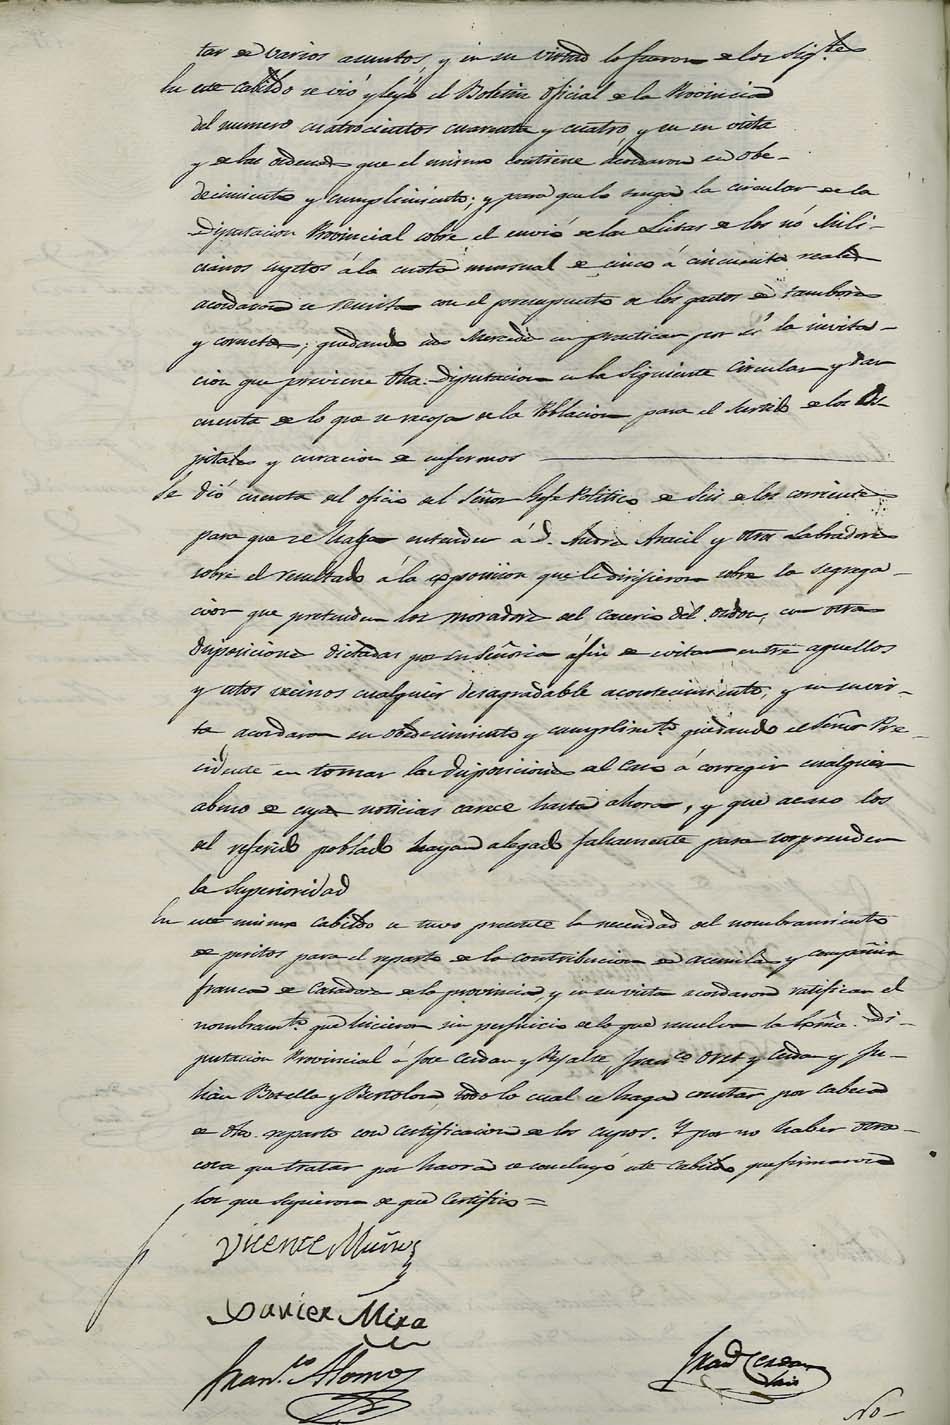 tar de varios asuntos, y en su virtud lo fueron de los sig.tes
En este Cabildo se vió y leyó el Boletin oficial de la Provincia
del numero cuatrocientos cuarenta y cuatro, y en su vista
y de las ordenes que el mismo contiene acordaron su obe-
decimiento y cumplimiento; y para que lo tenga la circular de la
Diputacion Provincial sobre el envió de las Listas de los nó Mili-
cianos sugetos á la cuota mensual de cinco á cincuenta reales
acordaron se remita con el presupuesto de los gastos de tambores
y cornetas; quedando sus Mercedes en practicar por sí la invita-
cion que previene dha. Diputacion en la siguiente Circular y dar
cuenta de lo que se recoja de la Poblacion para el surtido de los Os-
pitales y curacion de enfermos
Se dió cuenta del oficio del Señor Gefe Politico de seis de los corrientes
para que se haga entender á D. Andres Aracil y otros Labradores
sobre el resultado á la exposicion que le dirijieron sobre la segrega-
cion que pretenden los moradores del Caserio del, con otras
disposiciones dictadas por su Señoria áfin de evitar entre aquellos
y estos vecinos cualquier desagradable acontecimiento, y en su vis-
ta acordaron su obedecimiento y cumplim.to quedando el Señor Pre-
cidente en tomar las disposiciones al caso á corregir cualquier
abuso de cuyas noticias carece hasta ahora, y que acaso los
del referido poblado hayan alegado falsamente para sorprender
la Superioridad
En este mismo Cabildo se tuvo presente la necesidad del nombramiento
de peritos para el reparto de la contribucion de acemilas y compañia
franca de Casadores de la provincia, y en su vista acordaron ratificar el
nombram.to que hicieron sin perjuicio de lo que resuelva la Exma. Di-
putacion Provincial á Jose Cerdan y Fran.co y Cerdan y Ju-
lián Botella y Bertolon, todo lo cual se haga constar por cabeza
de dho. reparto con certificacion de los cupos. Y por no haber otra
cosa que tratar por haora se concluyó este Cabildo que firmaron
los que supieron de que Certifico =
Vicente Muñoz
Xavier Mira
Fran.co Alonso
Cerdan
No-